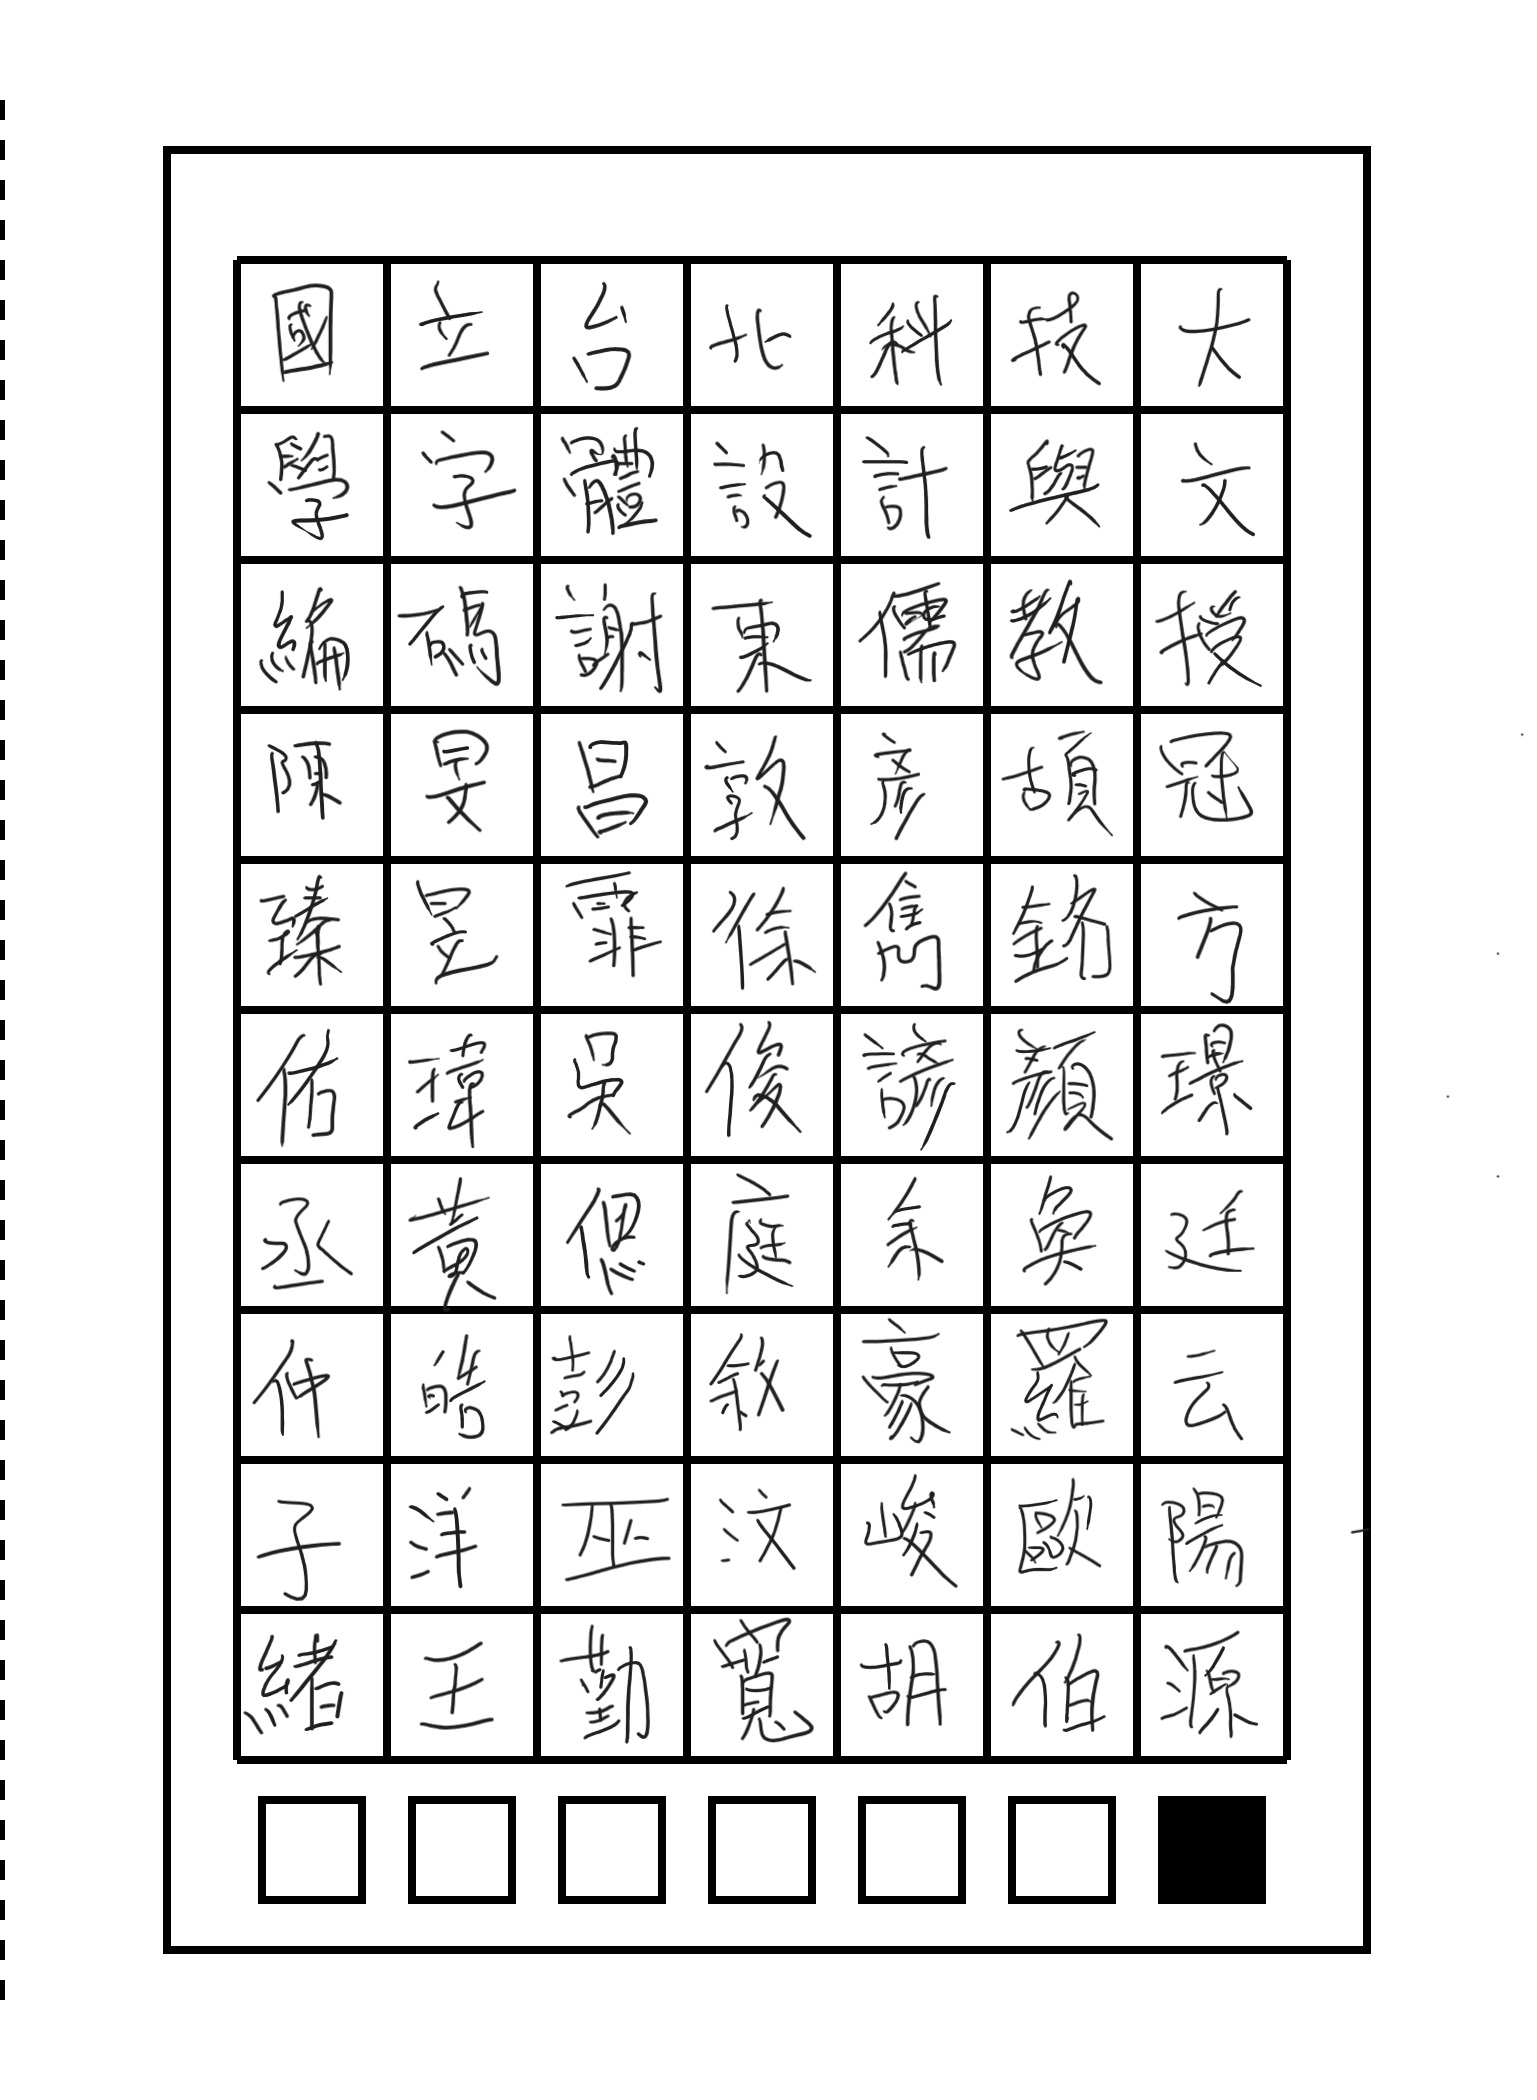 國立台北科技大
學字體設計與文
編碼謝東儒教授
陳旻昌敦彥頡冠
臻昱霏徐雋銘方
佑瑋吳俊諺顏璟
丞黃偲庭余奐廷
仲皓彭敘豪羅云
子洋巫汶峻歐陽
緒王勤寬胡伯源